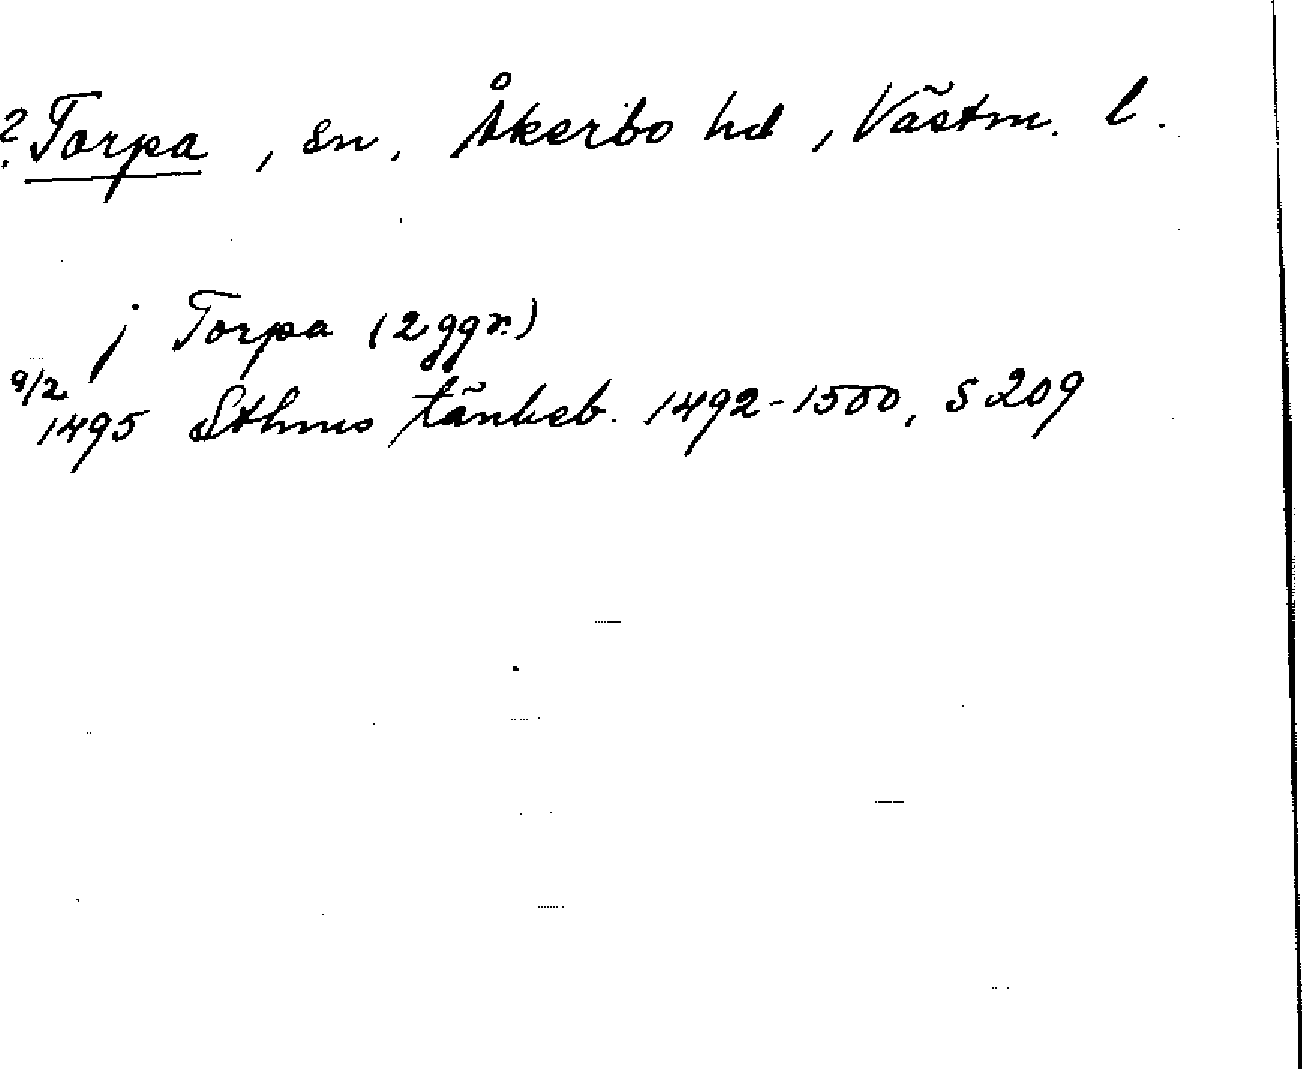 ? Torpa, sn, Åkerbo hd, Västm. l.
j Torpa (2 ggr.)
9/2 1495 Sthms tänkeb. 1492-1500, s 209